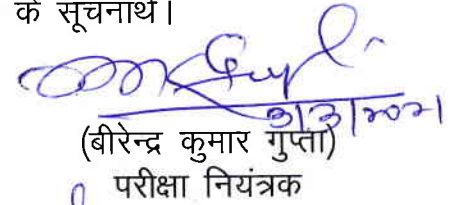 के सूचनार्थ।
3/3/2021
(बीरेन्द्र कुमार गुप्ता)
परीक्षा नियंत्रक